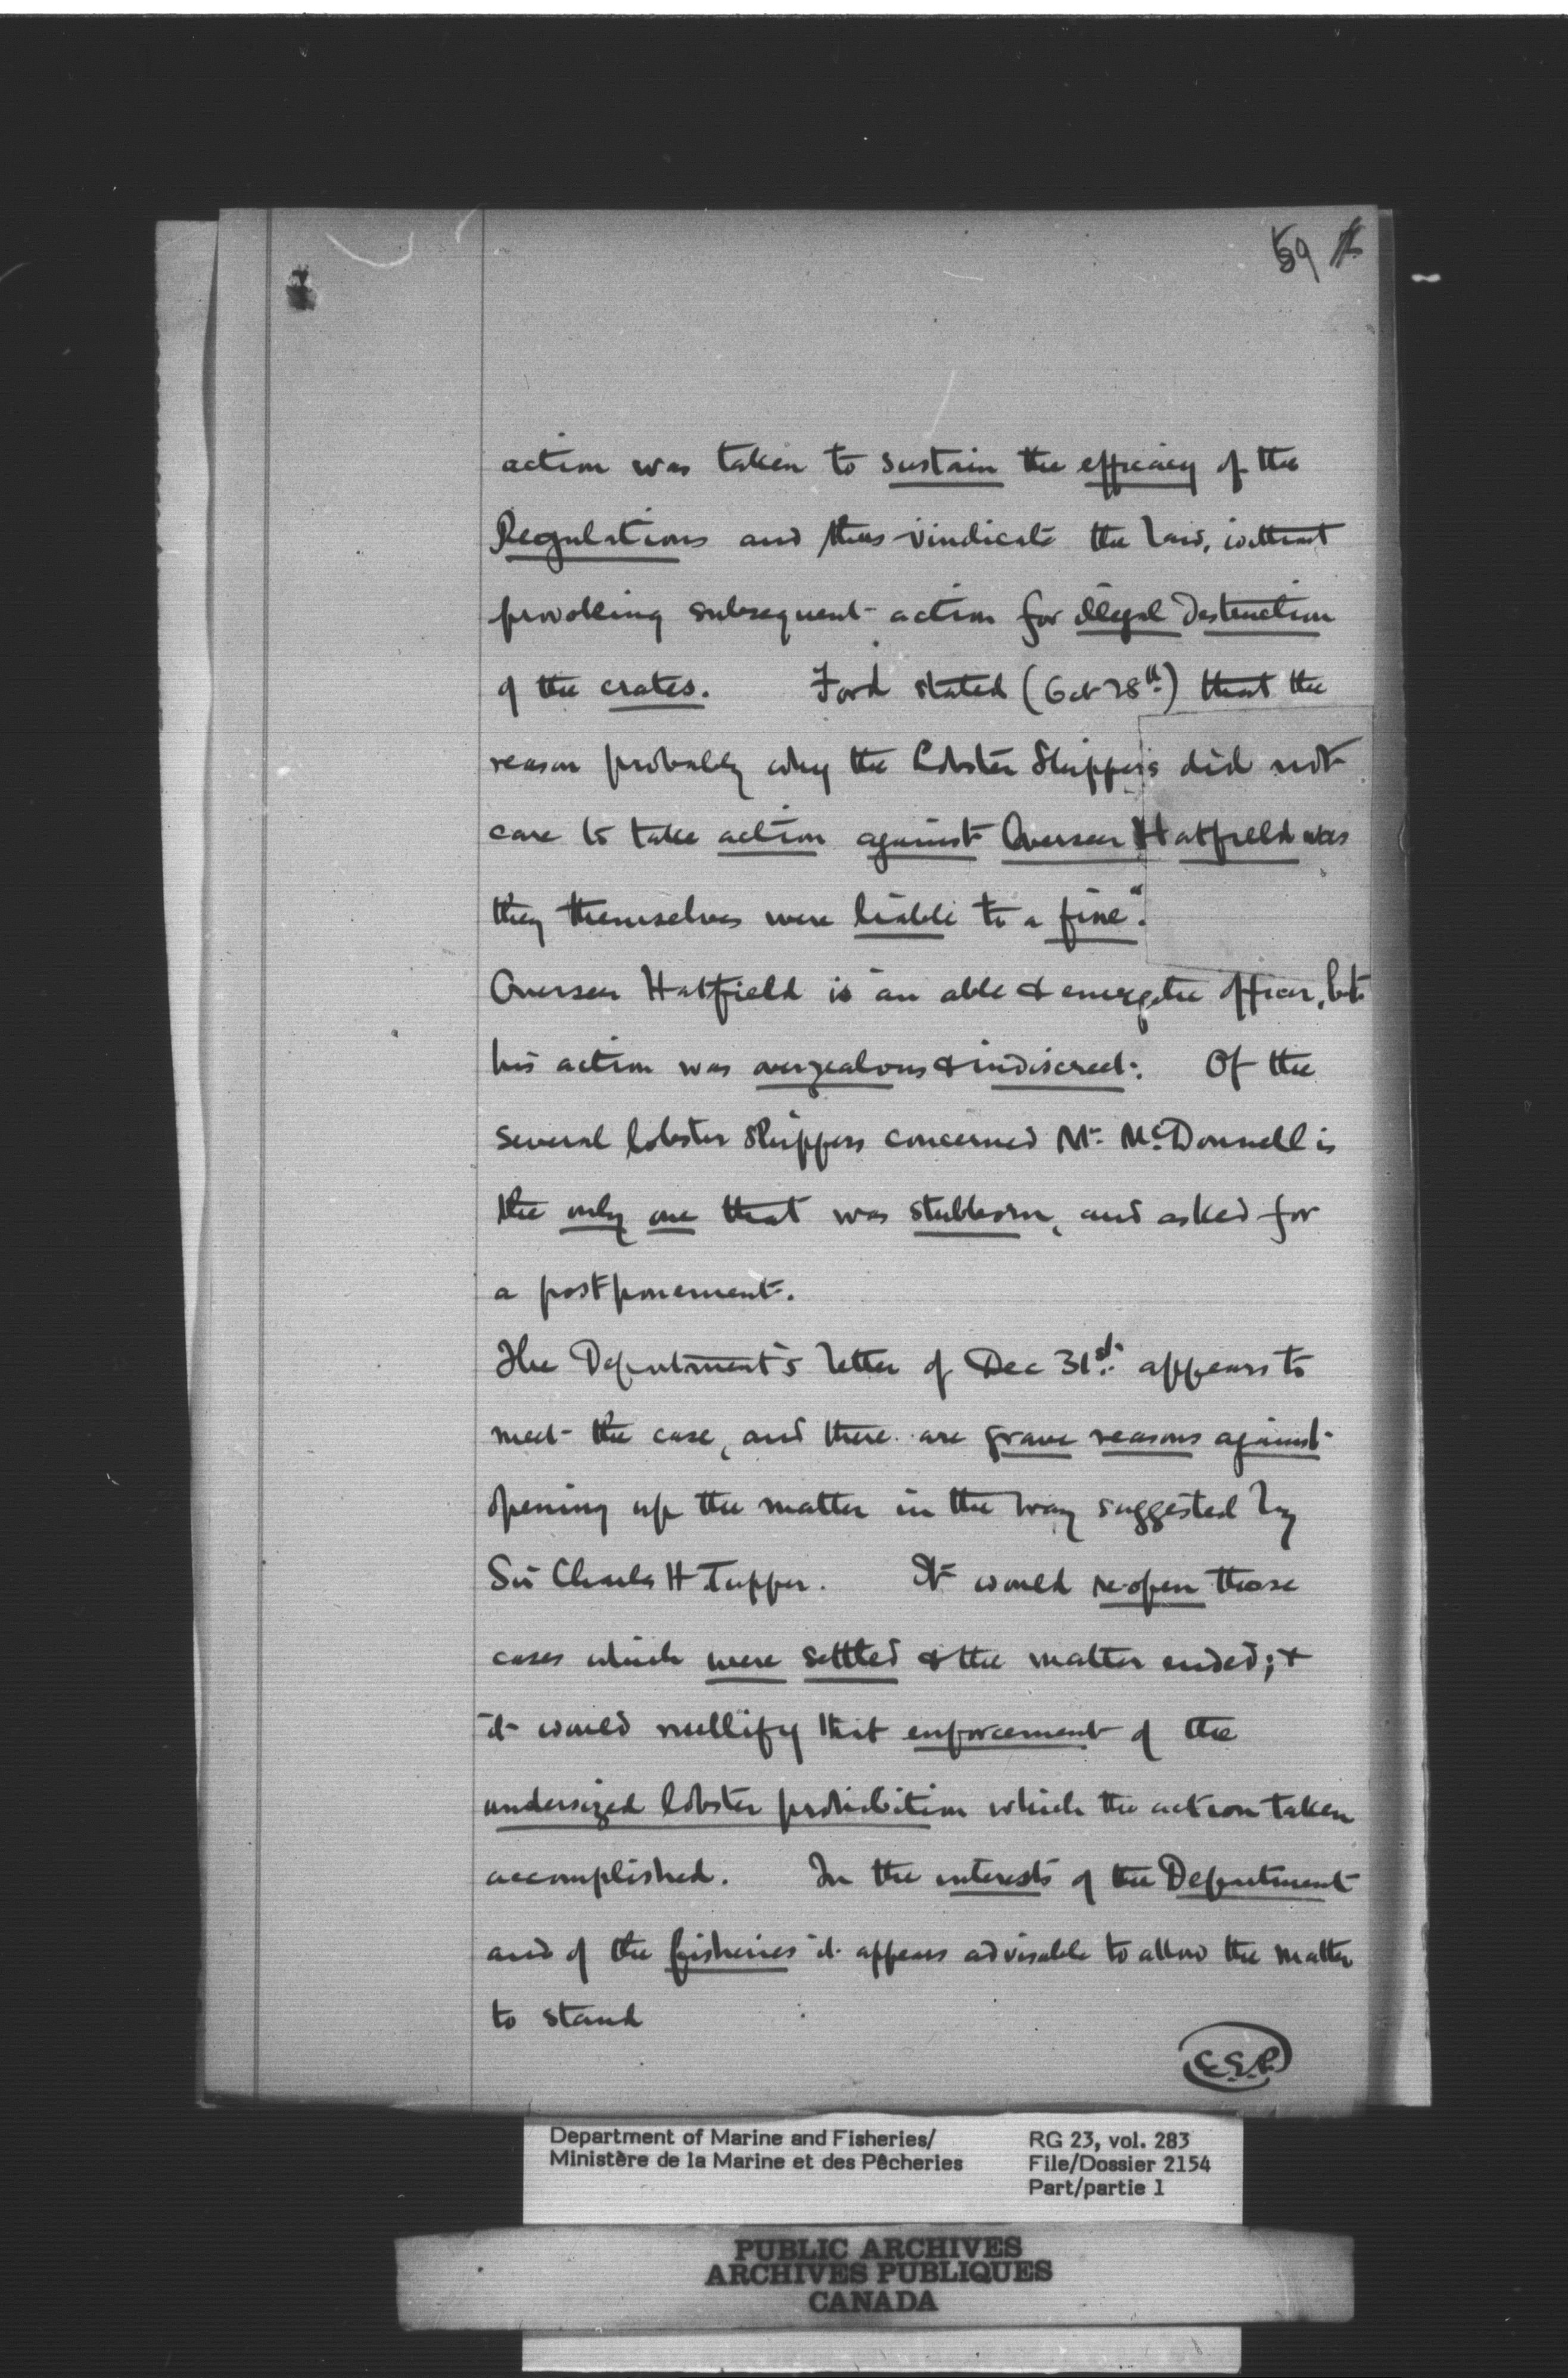 59
action was taken to sustain the efficacy of the
Regulations and thus vindicate the law, without
provoking subsequent action for illegal destruction
of the crates. Ford stated (Oct 28th) that the
reason probably why the Lobster Shippers did not
care to take action against Overseer Hatfield was
they themselves were liable to a fine".
Overseer Hatfield is an able & energetic officer, but
his action was overzealous & indiscreet. Of the
several lobster shippers concerned Mr. McDonnell is
the only one that was stubborn, and asked for
a postponement.
The Department's letter of Dec 31st. appears to
meet the case, and there are grave reasons against
opening up the matter in the way suggested by
Sir Charles H Tupper. It would re-open those
cases which were settled & the matter ended; &
it would nullify that enforcement of the
undersized lobster prohibition which the action taken
accomplished. In the interests of the Department
and of the fisheries it appears advisable to allow the matter
to stand
Department of Marine and Fisheries/
Ministère de la Marine et des Pêcheries
RG 23, vol. 283
File/Dossier 2154
Part/partie 1
PUBLIC ARCHIVES
ARCHIVES PUBLIQUES
CANADA